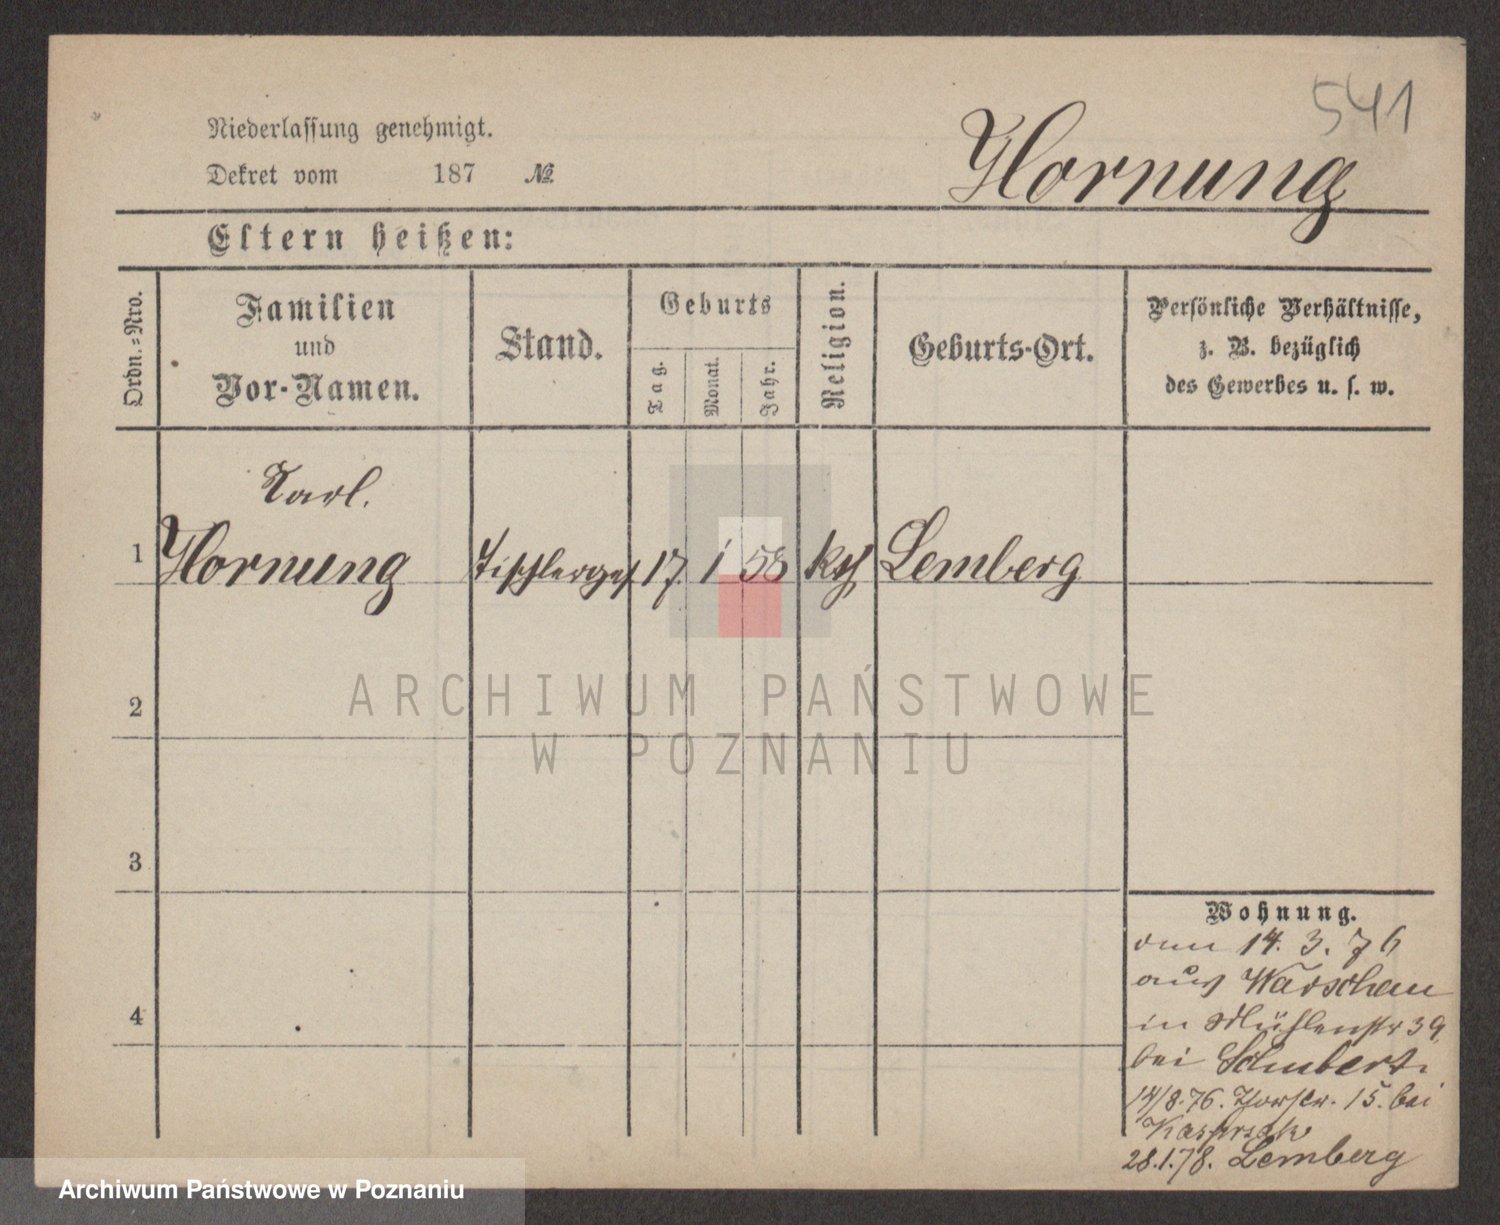 541
Niederlassung genehmigt.
Dekret vom 187 №
Hornung
Eltern heißen:
Ordn.=Nro.
Familien
und
Vor-Namen.
Stand.
Geburts
Tag.
Monat.
Jahr.
Religion.
Geburts-Ort.
Persönliche Verhältnisse,
z. B. bezüglich
des Gewerbes u. s. w.
Karl.
1 Hornung Tischlerges 17. 1 58 kth Lemberg
ARCHIWUM PAŃSTWOWE
W POZNANIU
2
3
4
Wohnung.
14. 3. 76
aus Warschau
in Mühlenstr 39
bei Schubert.
14/8.76. Thorstr. 15. bei
Kasprzak
28.1.78. Lemberg
Archiwum Państwowe w Poznaniu